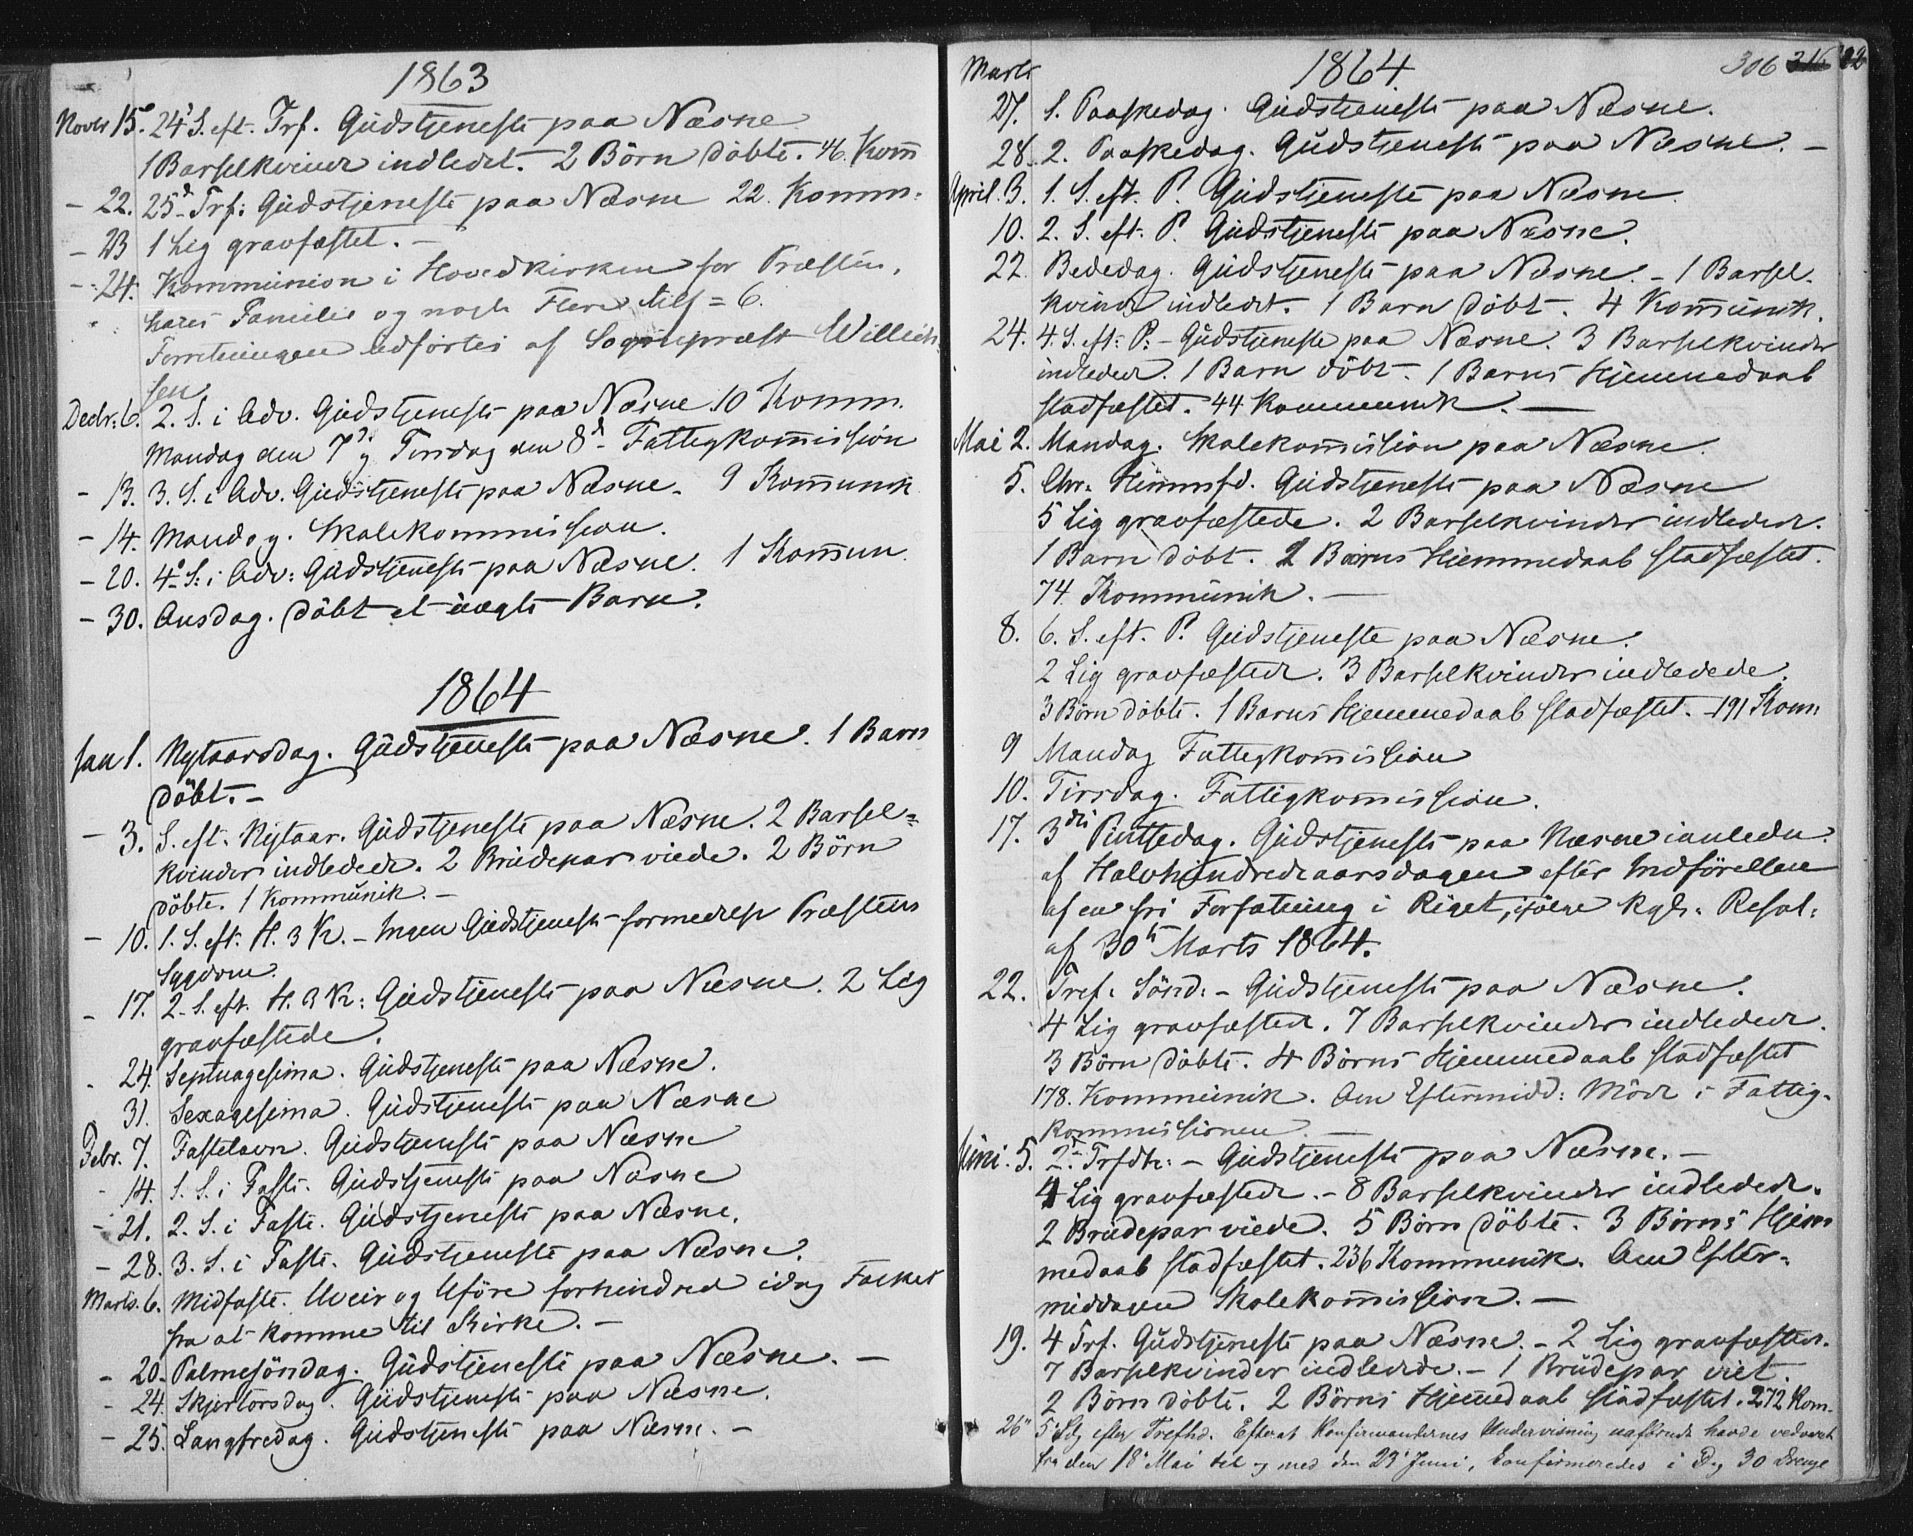 1863
Novbr 15. 24 S. eft. Trf. Gudstjeneste paa Næsne
1 Barselkvinde indledet. 2 Börn döbte. 46. Kom̅
- 22. 25d Trf: Gudstjeneste paa Næsne 22. Komm:
- 23 1 Lig gravfæstet. -
- 24. Kommunion i Hovedkirken for Præsten,
hans Familie og nogle Flere tils = 6.
Forretningen udförtes af Sognepræst Willich-
sen
Decbr: 6. 2. S. i Adv. Gudstjeneste paa Næsne 10 Komm.
Mandag den 7d og Tirsdag den 8d Fattigkom̅ission
- 13. 3. S. i Adv. Gudstjeneste paa Næsne. 9 Kom̅unik
- 14. Mandag. Skolekommission.
- 20. 4. S: i Adv: Gudstjeneste paa Næsne. 1 Kom̅un.
- 30. Onsdag. Döbt et uægte Barn.
1864
Jan 1. Nytaarsdag. Gudstjeneste paa Næsne. 1 Barn
döbt. -
- 3. S. eft. Nytaar. Gudstjeneste paa Næsne. 2 Barsel=
kvinder indledede. 2 Brudepar viede. 2 Börn
döbte. 1 Kommunik. -
- 10. 1. S. eft. H. 3 K. - Ingen Gudstjeneste formedelst Præstens
Sygdom.
- 17. 2. S. eft. H. 3 K: Gudstjeneste paa Næsne. 2 Lig
gravfæstede.
- 24. Septuagesima. Gudstjeneste paa Næsne.
31. Sexagesima. Gudstjeneste paa Næsne
Febr. 7. Fastelavn. Gudstjeneste paa Næsne
- 14. 1. S. i Faste. Gudstjeneste paa Næsne
- 21. 2. S. i Faste. Gudstjeneste paa Næsne.
- 28. 3. S. i Faste. Gudstjeneste paa Næsne.
Marts. 6. Midfaste. Uveir og Uföre forhindred idag Folket
fra at komme til Kirke. -
- 20. Palmesöndag. Gudstjeneste paa Næsne. -
- 24. Skjertorsdag. Gudstjeneste paa Næsne.
- 25. Langfredag. Gudstjeneste paa Næsne. -
1864. 306 316
Marts
27. 1. Paaskedag. Gudstjeneste paa Næsne.
28. 2. Paaskedag. Gudstjeneste paa Næsne. -
April. 3. 1. S. eft. P. Gudstjeneste paa Næsne.
10. 2. S. eft. P. Gudstjeneste paa Næsne.
22. Bededag. Gudstjeneste paa Næsne. - 1 Barsel-
kvinde indledet. 1 Barn döbt. 4 Kom̅unik.
24. 4. S. eft: P. - Gudstjeneste paa Næsne. 3 Barselkvinder
indledede. 1 Barn döbt. 1 Barns Hjemmedaab
stadfæstet. 44 Kommunik. -
Mai 2. Mandag. Skolekom̅ission paa Næsne.
5. Chr. Himmfd. Gudstjeneste paa Næsne
5 Lig gravfæstede. 2 Barselkvinder indledede.
1 Barn döbt. 2 Börns Hjemmedaab stadfæstet.
74 Kommunik. -
8. 6. S. eft. P. Gudstjeneste paa Næsne.
2 Lig gravfæstede. 3 Barselkvinder indledede.
3 Börn döbte. 1 Barns Hjemmedaab stadfæstet. - 191 Kom̅
9 Mandag Fattigkom̅ission
10. Tirsdag. Fattigkom̅ission.
17. 3die Pintsedag. Gudstjeneste paa Næsne i anledn.
af Halvhundredeaarsdagen efter Indförelsen
af en fri Forfatning i Riget, ifölge Kgl. Resol:
af 30te Marts 1864.
22. Tref. Sönd: - Gudstjeneste paa Næsne.
4 Lig gravfæstede. 7 Barselkvinder indledede.
3 Börn döbte. 4 Börns Hjemmedaab stadfæstet
178. Kommunik. Om Eftermidd: Möde i Fattig-
kommissionen. -
Juni. 5. 2. Trfdh: - Gudstjeneste paa Næsne. -
4 Lig gravfæstede. - 8 Barselkvinder indledede.
2 Brudepar viede. 5 Börn döbte. 3 Börns Hjem-
medaab stadfæstet. 236 Kommunik. Om Efter-
middagen Skolekom̅ission. -
19. 4 Trf. Gudstjeneste paa Næsne. - 2 Lig gravfæstede.
7 Barselkvinder indledede. - 1 Brudepar viet.
2 Börn döbte. 2 Börns Hjem̅edaab stadfæstet. 272 Kom.
26" 5 Sdg efter Trefhd. Efterat Konfirmandernes Undervisning uafbrudt havde vedvaret
fra den 18 Mai til og med den 23 Juni, konfirmeredes i Dag 30 Drenge